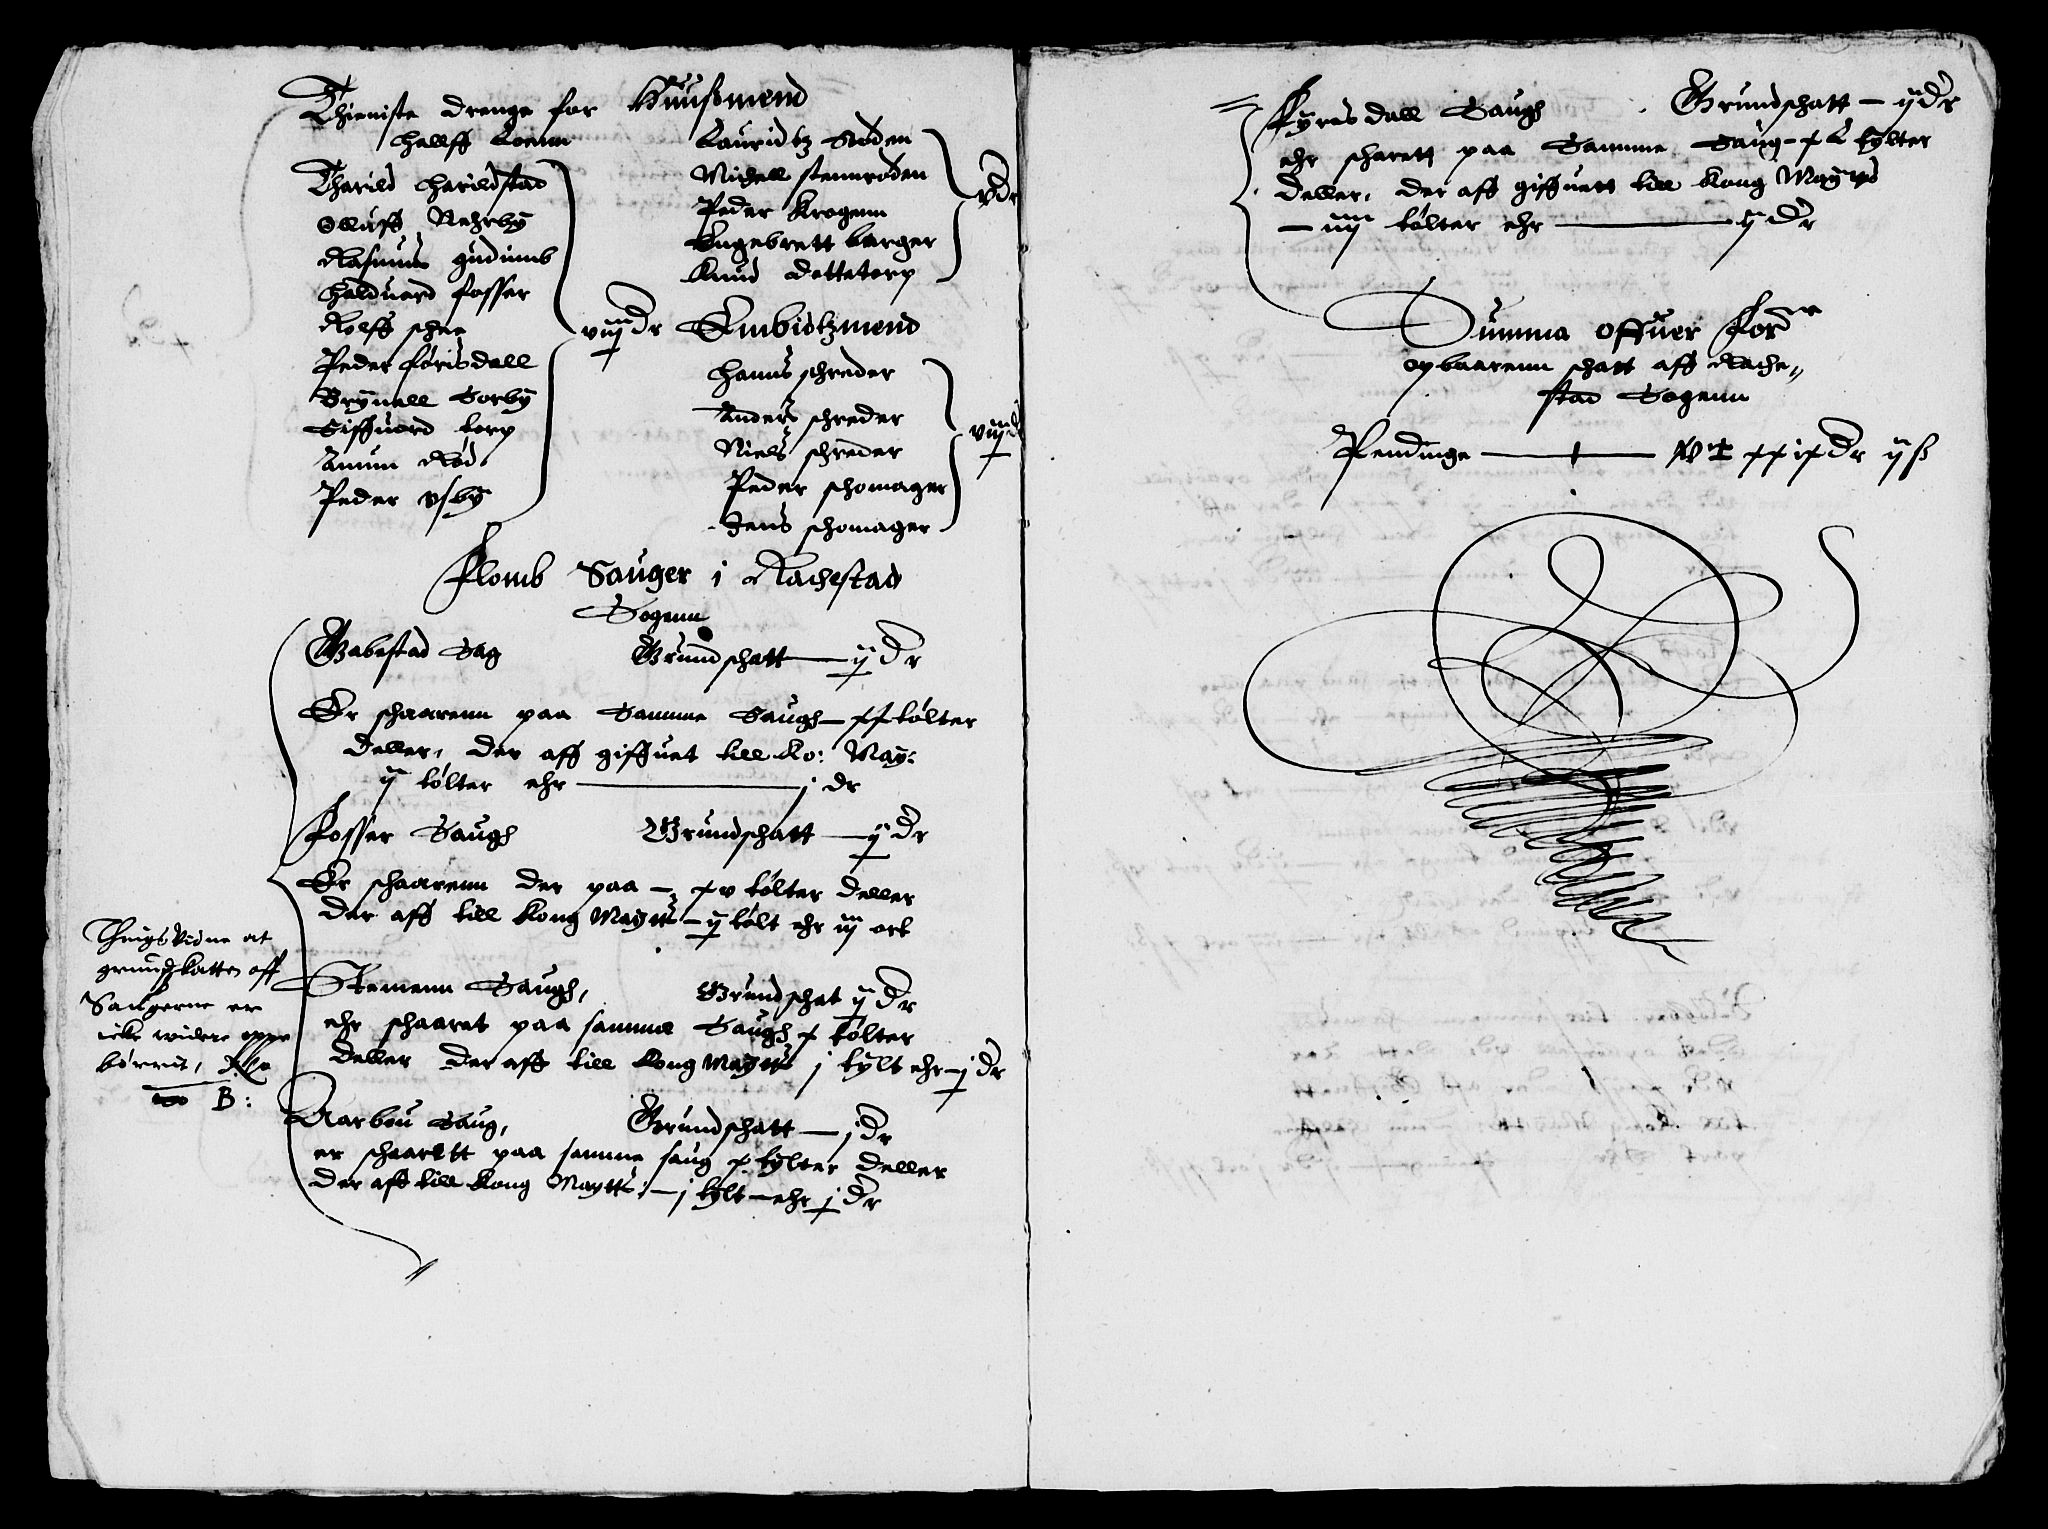 Thieniste drenge for
halff Loenn
Tharild harildstad
Oluff Nehrby
Rasmus gudimb
halduord fosser
Rolff schee
Peder førisdall
Brynell Sorby
Siffuord torp
Amun Rød
Peder Usby
viij dr
Huusmend
Lauridtz Røden
Michell stennrøden
Peder Krogenn
Engebrett barger
Knud dettetorp
v dr
Embidtzmend
hanns schreder
Anders schreder
Niels schreder
Peder schomager
Jens schomager
viij dr
Flomb Sauger i Rachestad
Sogenn
Gabestad Sag Grundschatt — ij dr
Er schaarenn paa Samme Saugh — xx tølter
deller, der aff giffuet till Ko: May:
ij tølter ehr — j dr
Fosser Saugh Grundschatt — ij dr
Er schaarenn der paa — xv tølter deller
der aff till Kong Maytts — ij tølt ehr iij ort
Stemenn Saugh, Grundschat ij dr
ehr schaaret paa samme Saugh x tølter
deller der aff till Kong Maytts j tylt ehr — j dr
Aarbou Saug, Grundschatt — j dr
er schaarett paa samme saug x tylter deller
der aff till Kong Maytts: — j tylt — ehr j dr
Thingsvidne at
grundskatten aff
Saugerne er
icke widere oppe
børrit,
B:
Fyrisdall Saugh Grundschatt — ij dr
ehr scharett paa Samme Saug — x L tylter
deller, der aff giffuett till Kong Mayts
— iiij tølter ehr — ij dr
Summa offuer For
opbaarenn schatt aff Rache„
stad Sogenn
Pendinge — xxix dr ij ß